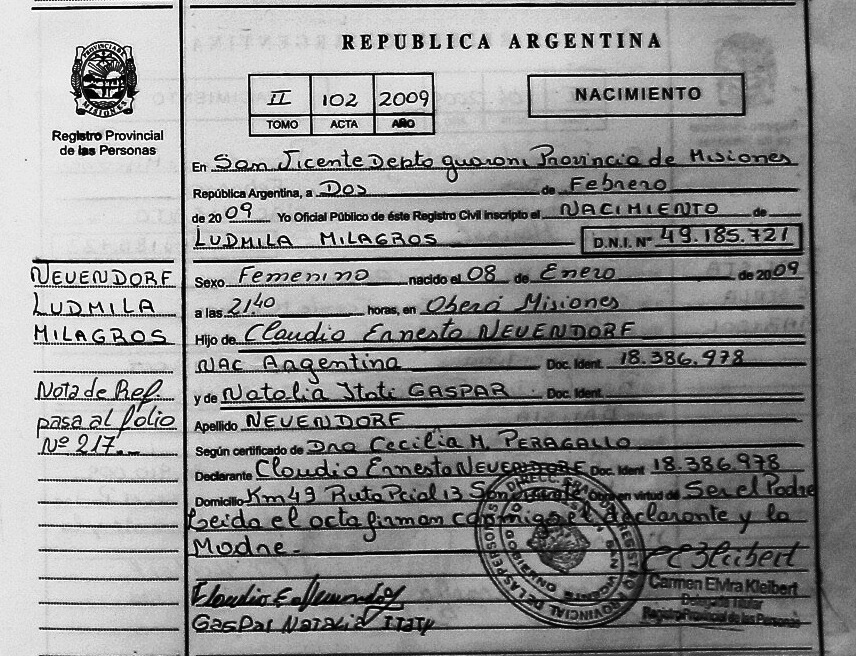 PROVINCIA DE
MISIONES
Registro Provincial
de las Personas
REPUBLICA ARGENTINA
II 102 2009
TOMO ACTA AÑO
NACIMIENTO
En San Vicente Depto guarani Provincia de Misiones
República Argentina, a Dos de Febrero
de 2009 Yo Oficial Público de éste Registro Civil inscripto el NACIMIENTO de
LUDMILA MILAGROS D.N.I. Nº 49.185.721
Sexo Femenino nacido el 08 de Enero de 2009
a las 21,40 horas, en Oberá Misiones
Hijo de Claudio Ernesto NEUENDORF
NAC Argentina Doc. Ident. 18.386.978
y de Natalia Itati GASPAR Doc. Ident.
Apellido NEUENDORF
Según certificado de Dra Cecilia M. PERAGALLO
Declarante Claudio Ernesto NEUENDORF Doc. Ident 18.386.978
Domicilio Km 49 Ruta Pcial 13 San Vicente Obra en virtud de Ser el Padre
Leida el acta firman conmigo el declarante y la
Madre.-
NEUENDORF
LUDMILA
MILAGROS
Nota de Ref.
pasa al folio
Nº 217.--
GASPAR NATALIA ITATI
Carmen Elvira Kleibert
Delegada Titular
Registro Provincial de las Personas